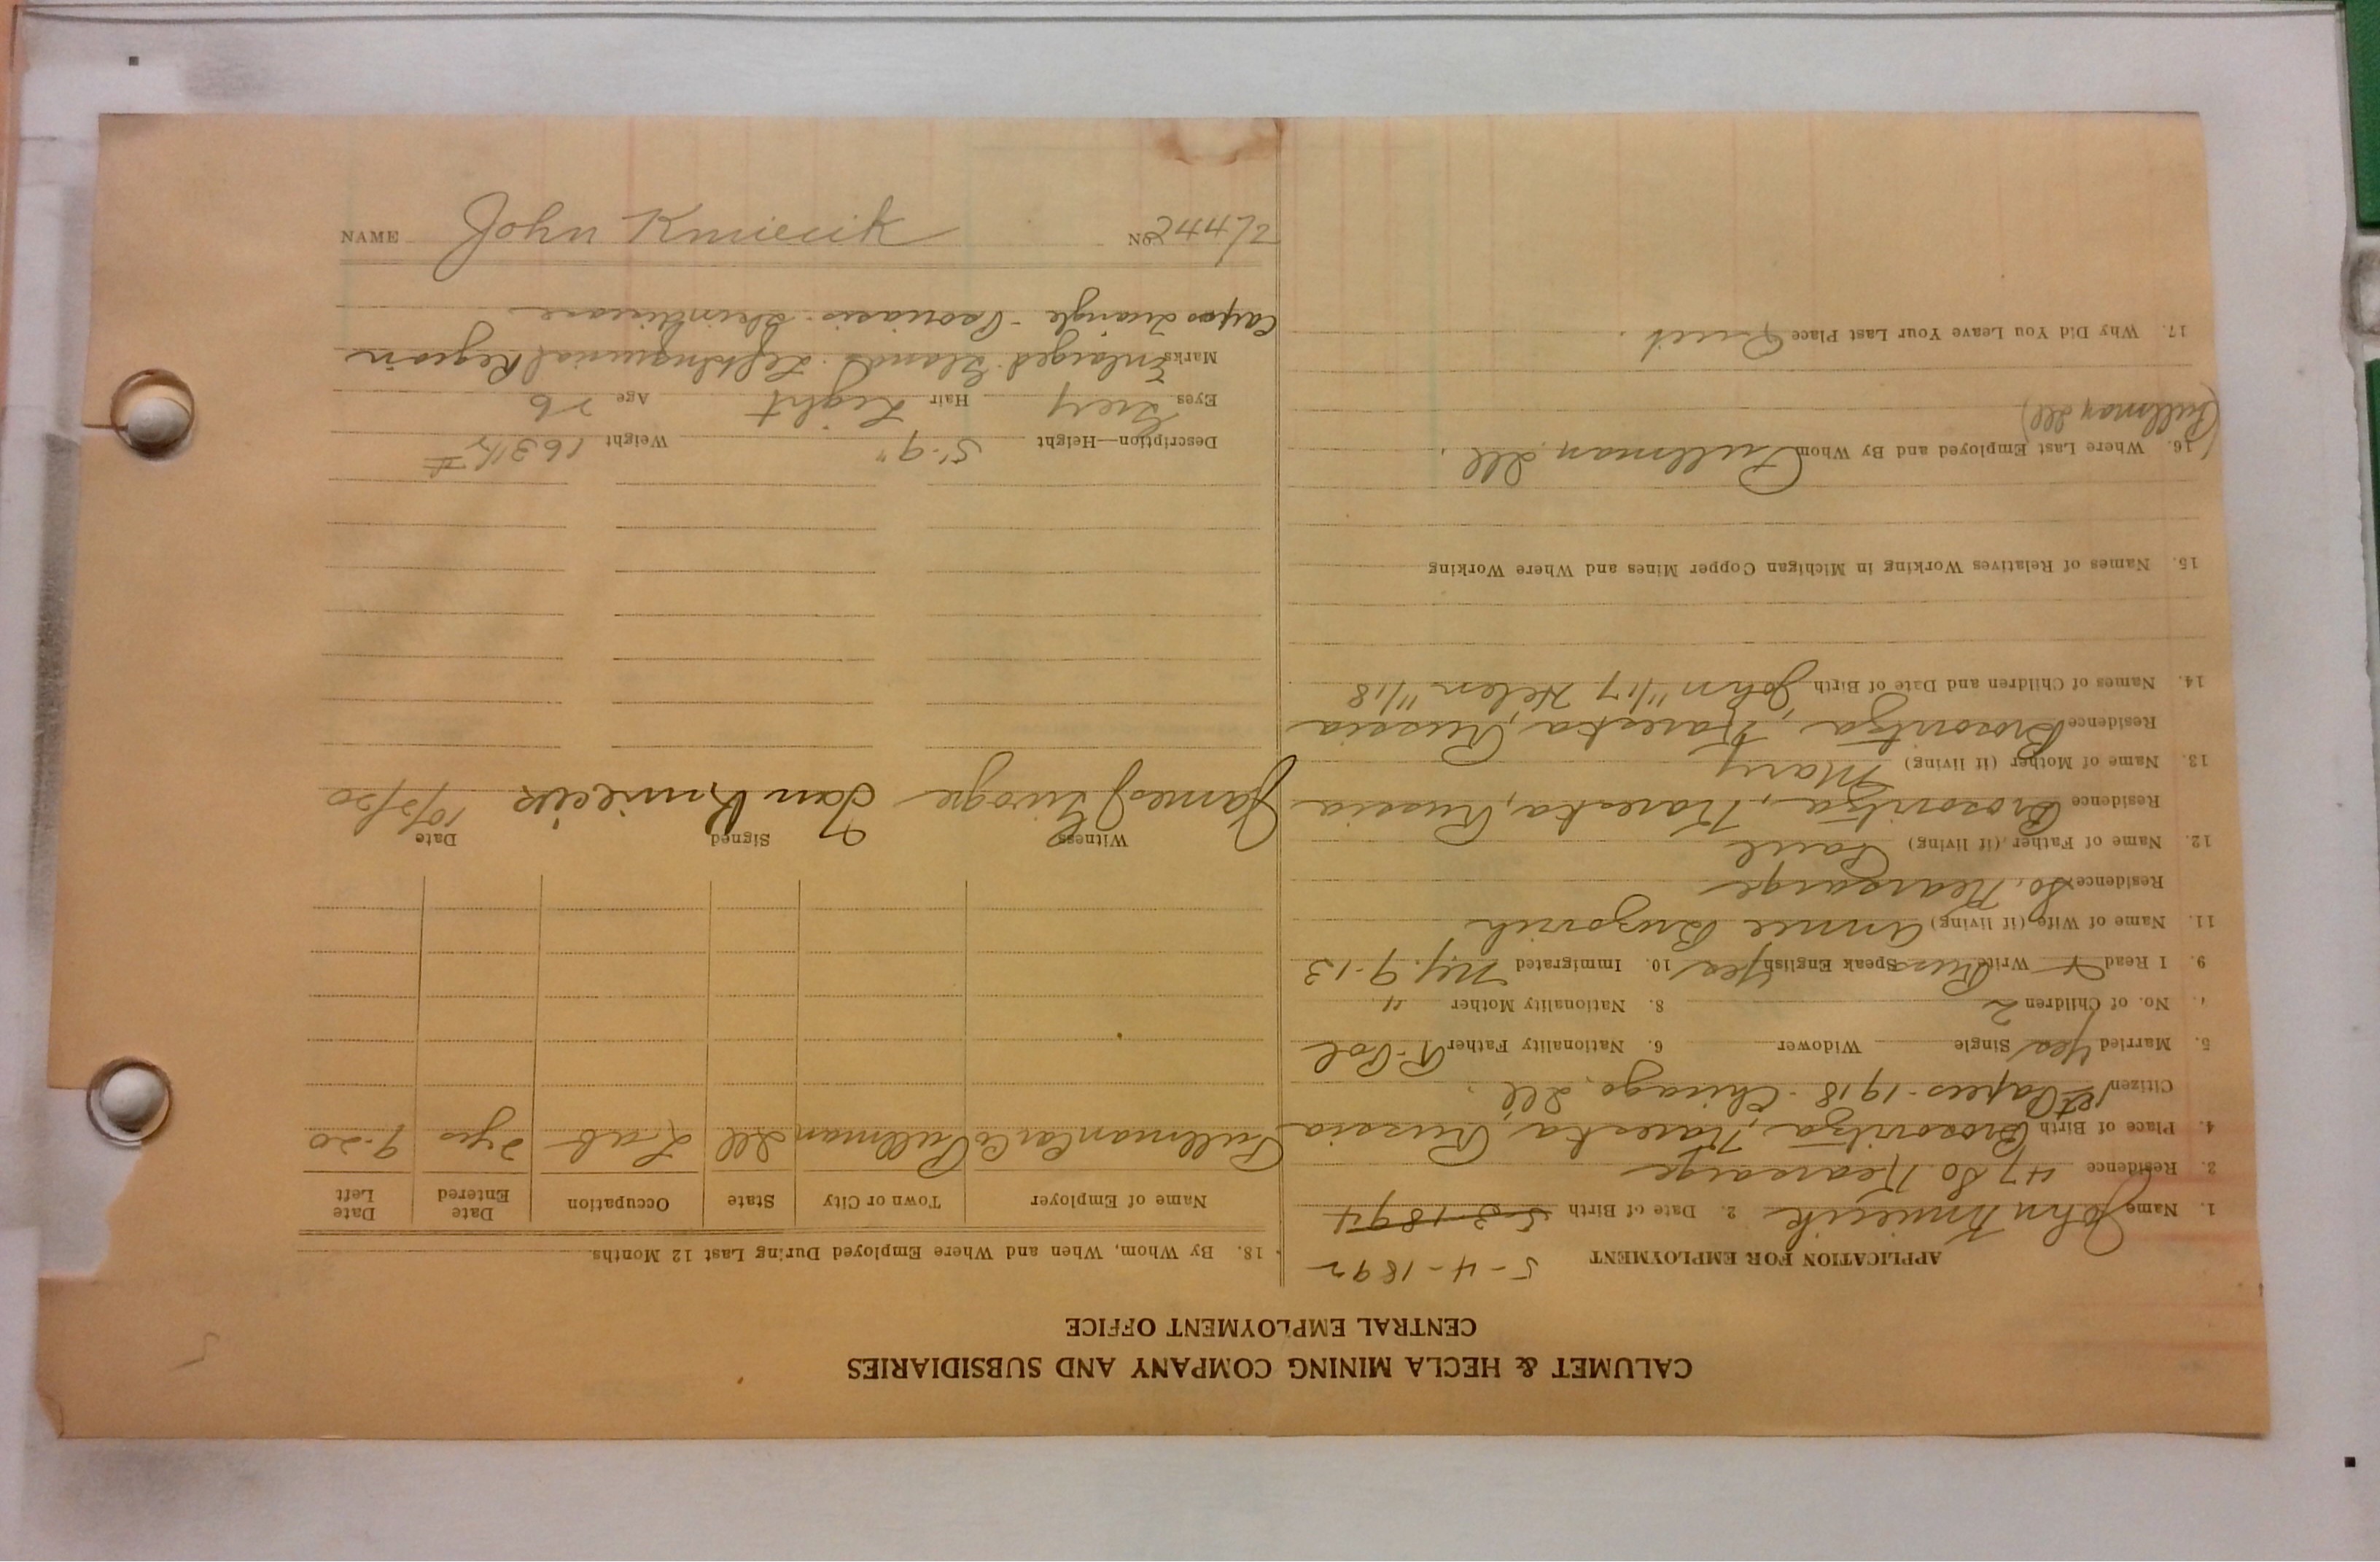 CALUMET & HECLA MINING COMPANY AND SUBSIDIARIES
CENTRAL EMPLOYMENT OFFICE
APPLICATION FOR EMPLOYMENT 5-4-1892
1. Name John Kmiecik 2. Date of Birth 5-3-1894
3. Residence 47 So. Kearsarge
4. Place of Birth Brosovitza, Kareska, Russia
Citizen 1st Papers-1918-Chicago, Ill.
5. Married Yes Single Widower 6. Nationality Father R-Pol
7. No. of Children 2 8. Nationality Mother "
9. I Read x Write Russ Speak English Yes 10. Immigrated N.Y. 9-13
11. Name of Wife (if living) Annie Brozovich
Residence So. Kearsarge
12. Name of Father (if living) Paul
Residence Brosovitza, Kareska, Russia
13. Name of Mother (if living) Mary
Residence Brosovitza, Kareska, Russia
14. Names of Children and Date of Birth John 11/17 Helen 11/18
15. Names of Relatives Working in Michigan Copper Mines and Where Working
16. Where Last Employed and By Whom Pullman, Ill.
(Pullman Ill)
17. Why Did You Leave Your Last Place Quit.
18. By Whom, When and Where Employed During Last 12 Months
Name of Employer Town or City State Occupation Date Entered Date Left
Pullman Car Co Pullman Ill Lab 2 yrs 9-20
Witness Signed Date
James Jan Kmiecik 10/2/20
Description—Height 5'-9" Weight 163 1/2 #
Eyes Grey Hair Light Age 26
Marks Enlarged Glands Left Inguinal Region
NAME John Kmiecik No. 24472